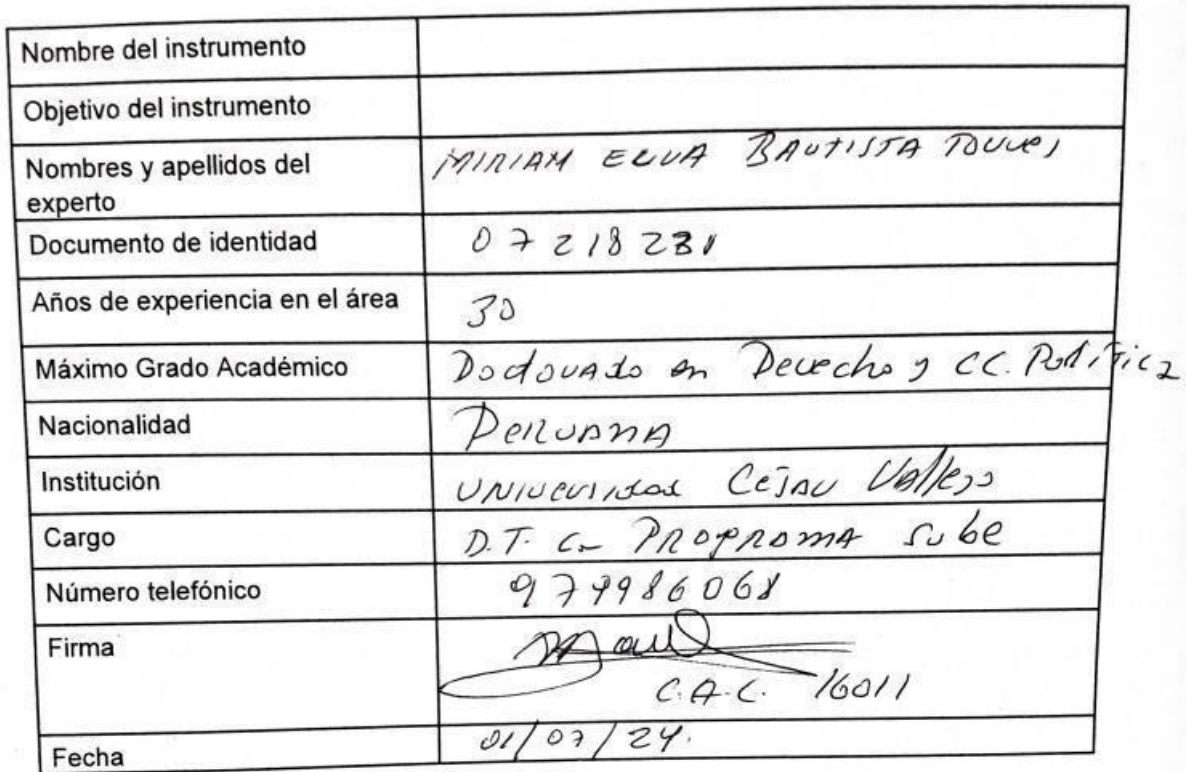 Nombre del instrumento
Objetivo del instrumento
Nombres y apellidos del
experto
MIRIAM ELVA BAUTISTA TORRES
Documento de identidad
07218231
Años de experiencia en el área
30
Máximo Grado Académico
Doctorado en Derecho y CC. Política
Nacionalidad
Peruana
Institución
UNIVERSIDAD César Vallejo
Cargo
D.T.C. PROGRAMA Sube
Número telefónico
979986068
Firma
C.A.L. 16011
Fecha
01/07/24.